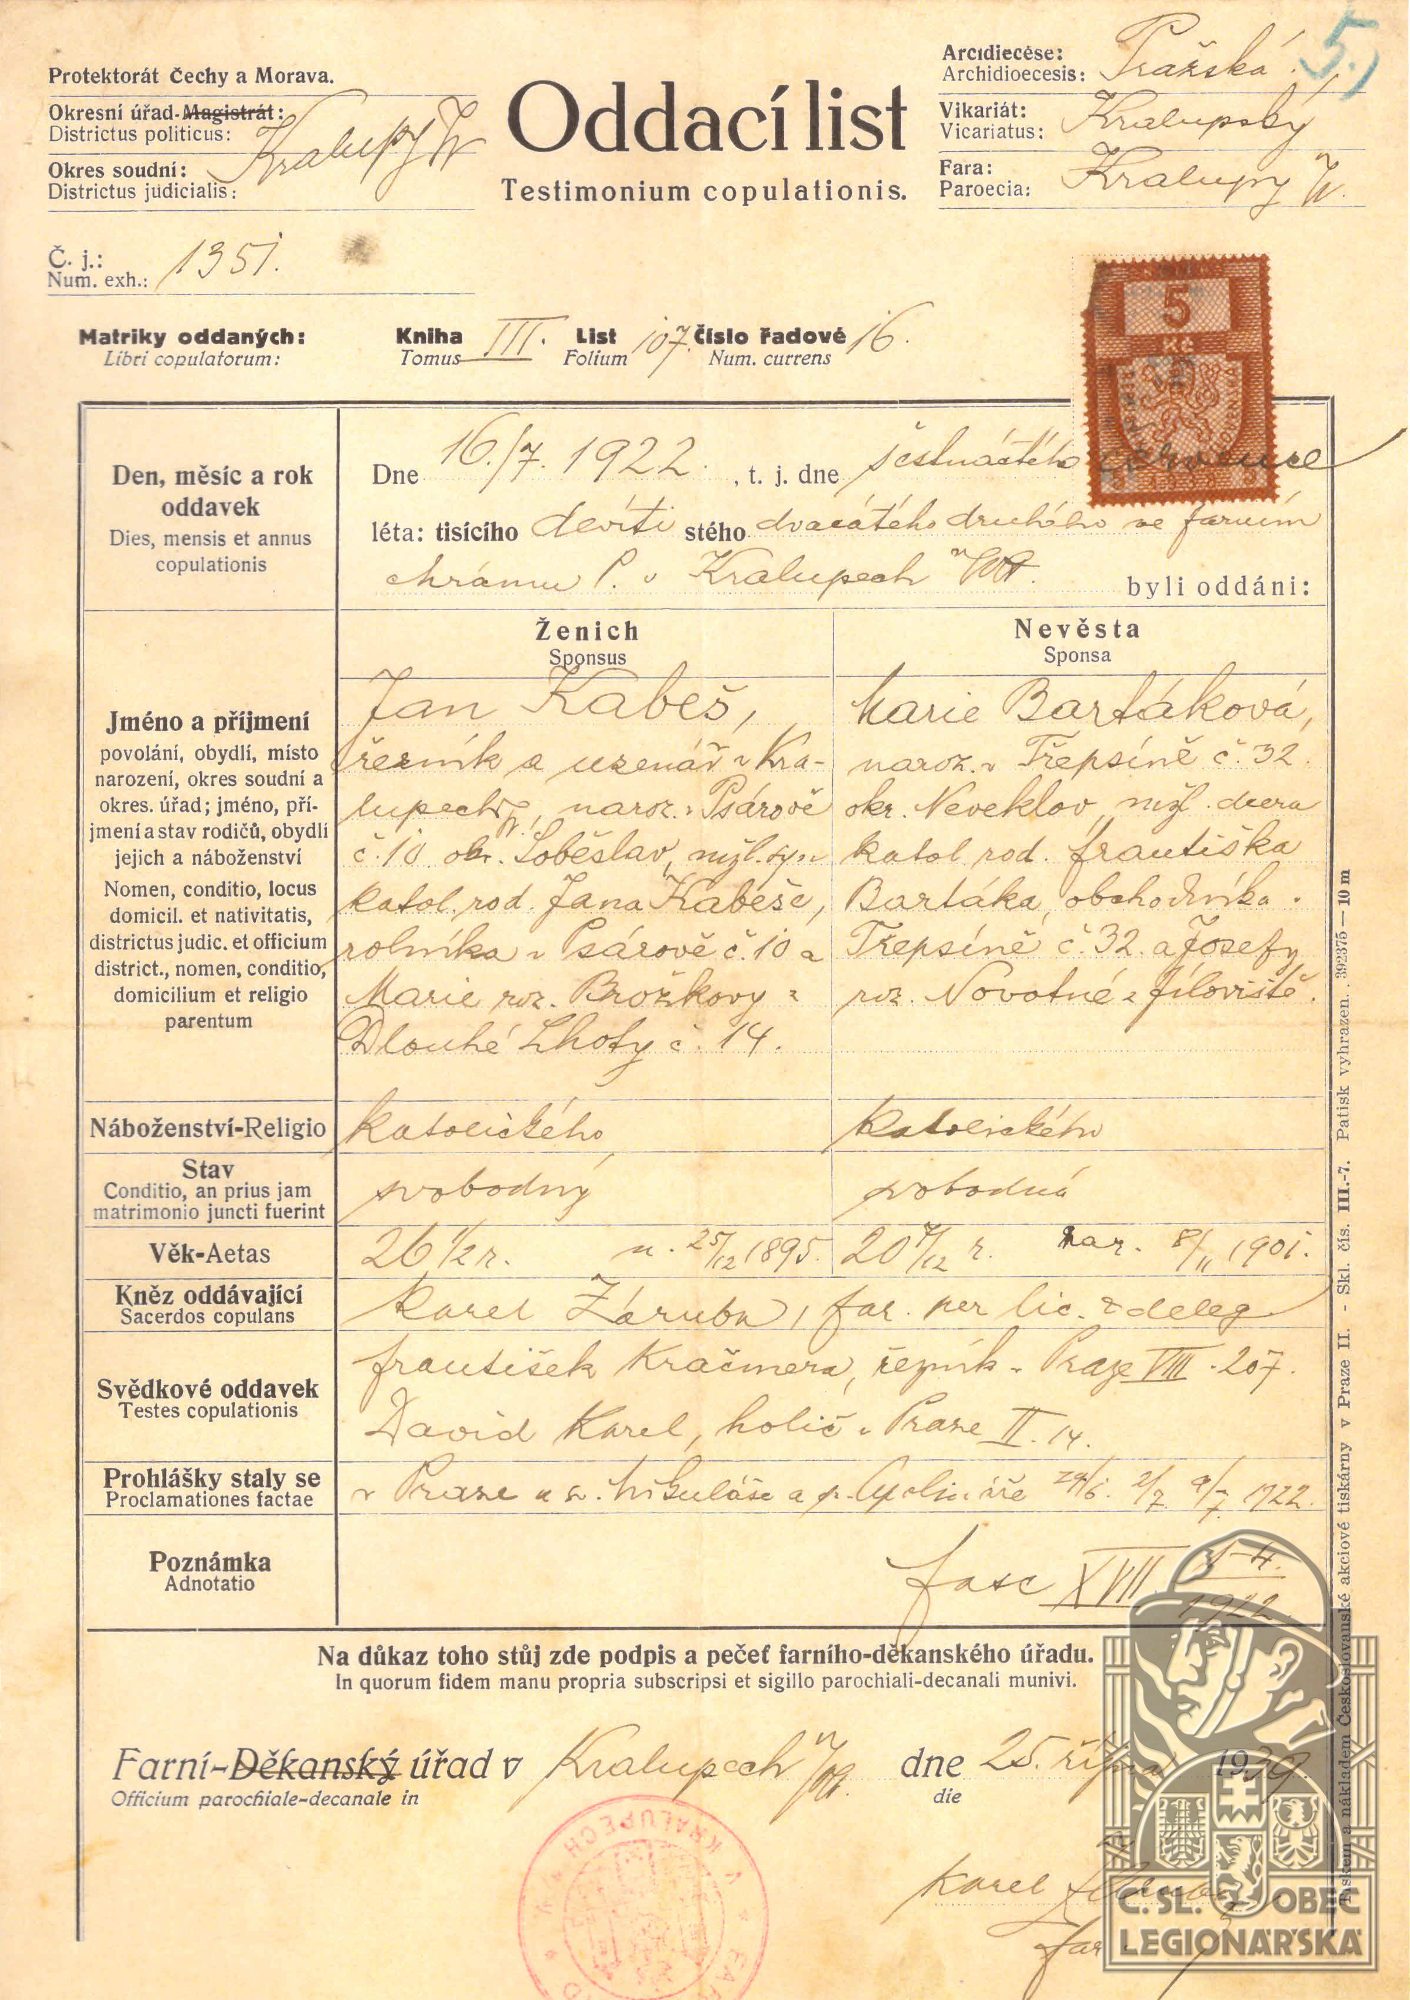 5.)
Protektorát Čechy a Morava.
Okresní úřad-Magistrát:
Districtus politicus:
Kralupy n/V
Okres soudní:
Districtus judicialis:
Č. j.:
Num. exh.:
1351.
Oddací list
Testimonium copulationis.
Arcidiecése:
Archidioecesis:
Pražská
Vikariát:
Vicariatus:
Kralupský
Fara:
Paroecia:
Kralupy n/V.
5
Kč
Matriky oddaných: Kniha III. List 107. Číslo řadové 16.
Libri copulatorum: Tomus Folium Num. currens
Den, měsíc a rok
oddavek
Dies, mensis et annus
copulationis
Dne 16./7. 1922. , t. j. dne šestnáctého července
léta: tisícího devíti stého dvacátého druhého ve farním
chrámu P. v Kralupech n/Vlt. byli oddáni:
Ženich
Sponsus
Nevěsta
Sponsa
Jméno a příjmení
povolání, obydlí, místo
narození, okres soudní a
okres. úřad; jméno, pří-
jmení a stav rodičů, obydlí
jejich a náboženství
Nomen, conditio, locus
domicil. et nativitatis,
districtus judic. et officium
district., nomen, conditio,
domicilium et religio
parentum
Jan Kabeš,
řezník a uzenář v Kra-
lupech n/V, naroz. v Psárově
č. 10 okr. Soběslav, mžl. syn
katol. rod. Jana Kabeše,
rolníka v Psárově č. 10 a
Marie roz. Brožkovy z
Dlouhé Lhoty č. 14.
Marie Bartáková,
naroz. v Třepsíně č. 32.
okr. Neveklov, mžl. dcera
katol. rod. Františka
Bartáka, obchodníka v
Třepsíně č. 32. a Josefy
roz. Novotné z Jíloviště.
Náboženství-Religio
katolického
katolického
Stav
Conditio, an prius jam
matrimonio juncti fuerint
svobodný
svobodná
Věk-Aetas
26 1/2 r. n. 25/12 1895.
20 7/12 r. nar. 8/11 1901.
Kněz oddávající
Sacerdos copulans
Karel Záruba, far. per lic. & deleg
Svědkové oddavek
Testes copulationis
František Kračmera, řezník v Praze VIII. 207.
David Karel, holič v Praze II. 14.
Prohlášky staly se
Proclamationes factae
v Praze u sv. Mikuláše a sv. Apolináře 29/6. 2/7. 9/7 1922.
Poznámka
Adnotatio
fasc XVII 1-4.
1922.
Na důkaz toho stůj zde podpis a pečeť farního-děkanského úřadu.
In quorum fidem manu propria subscripsi et sigillo parochiali-decanali munivi.
Farní-Děkanský úřad v Kralupech n/Vlt. dne 25. října 1939.
Officium parochiale-decanale in die
Karel
far.
V KRALUPECH
Č. SL. OBEC
LEGIONÁŘSKÁ
Tiskem a nákladem Československé akciové tiskárny v Praze II. - Skl. čís. III.-7. Patisk vyhrazen. 392375—10 m